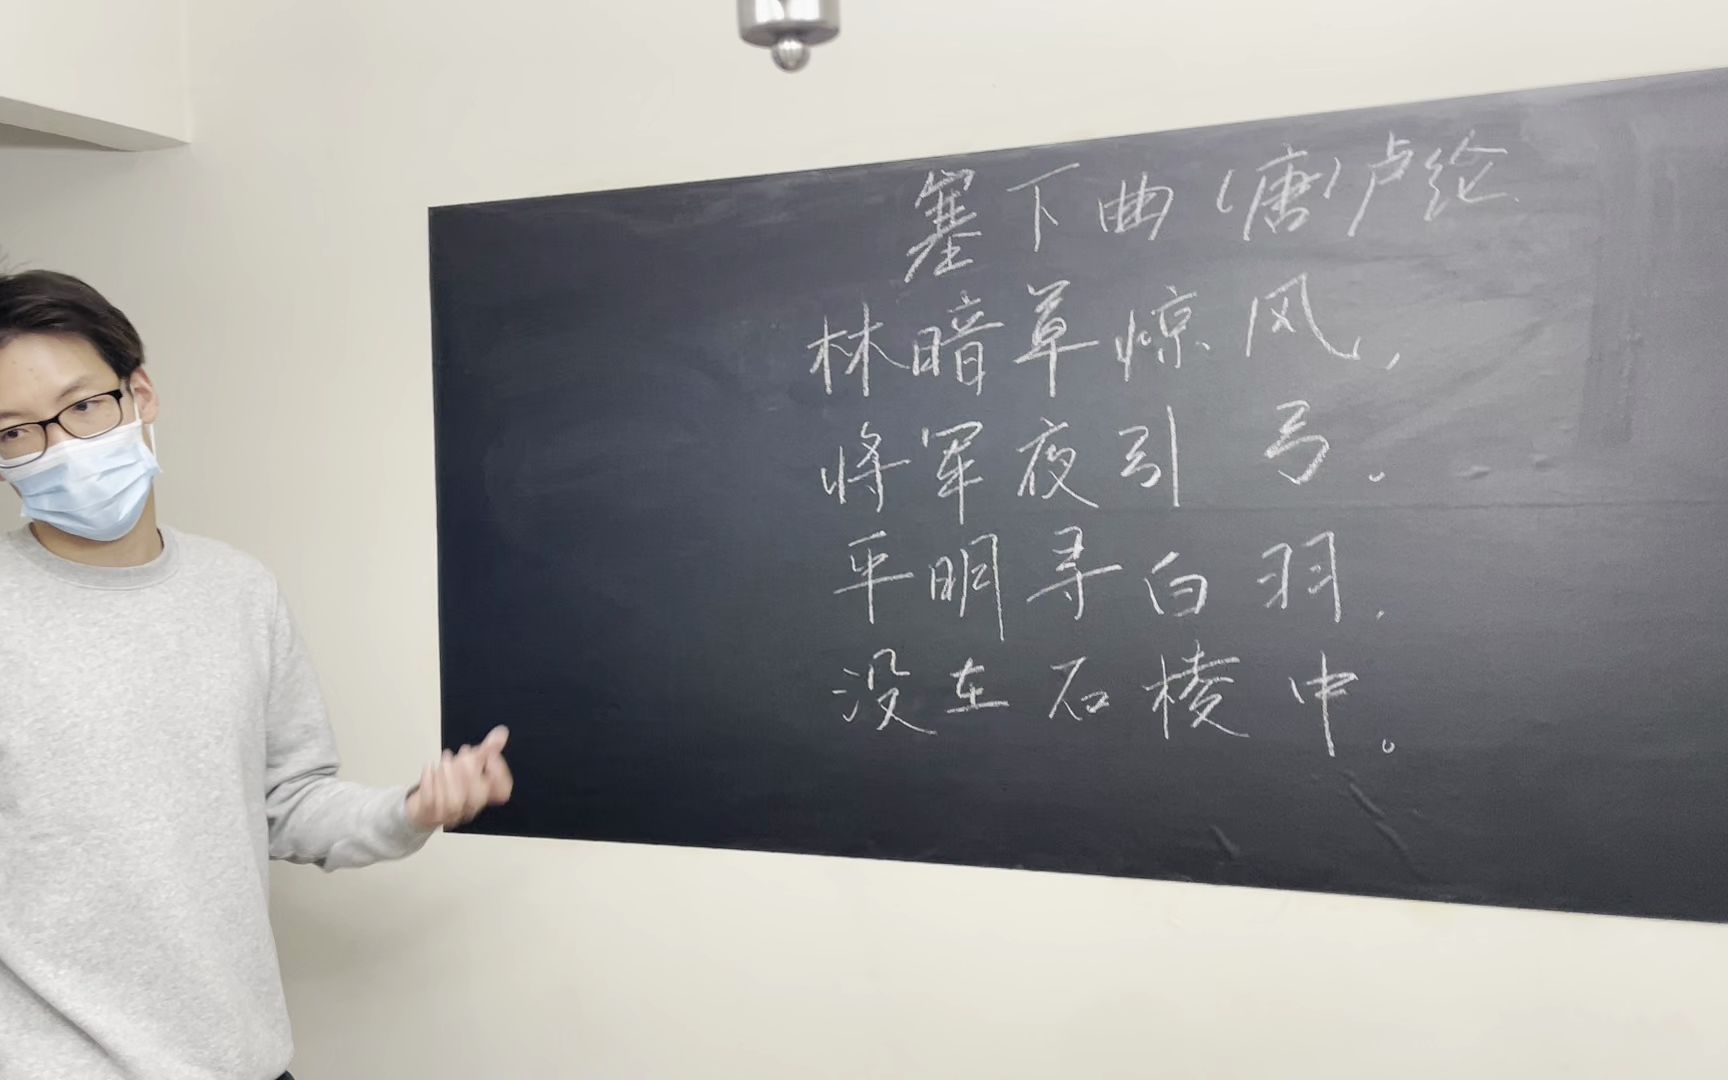 塞下曲（唐）卢纶
林暗草惊风，
将军夜引弓。
平明寻白羽，
没在石棱中。